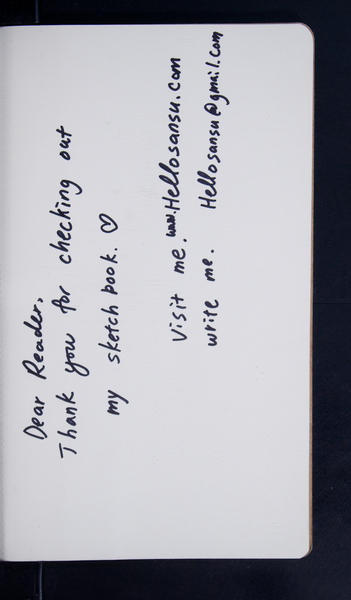 Dear Reader,
Thank you for checking out
my sketchbook. ♡
Visit me. www.Hellosansu.com
write me. Hellosansu@gmail.com